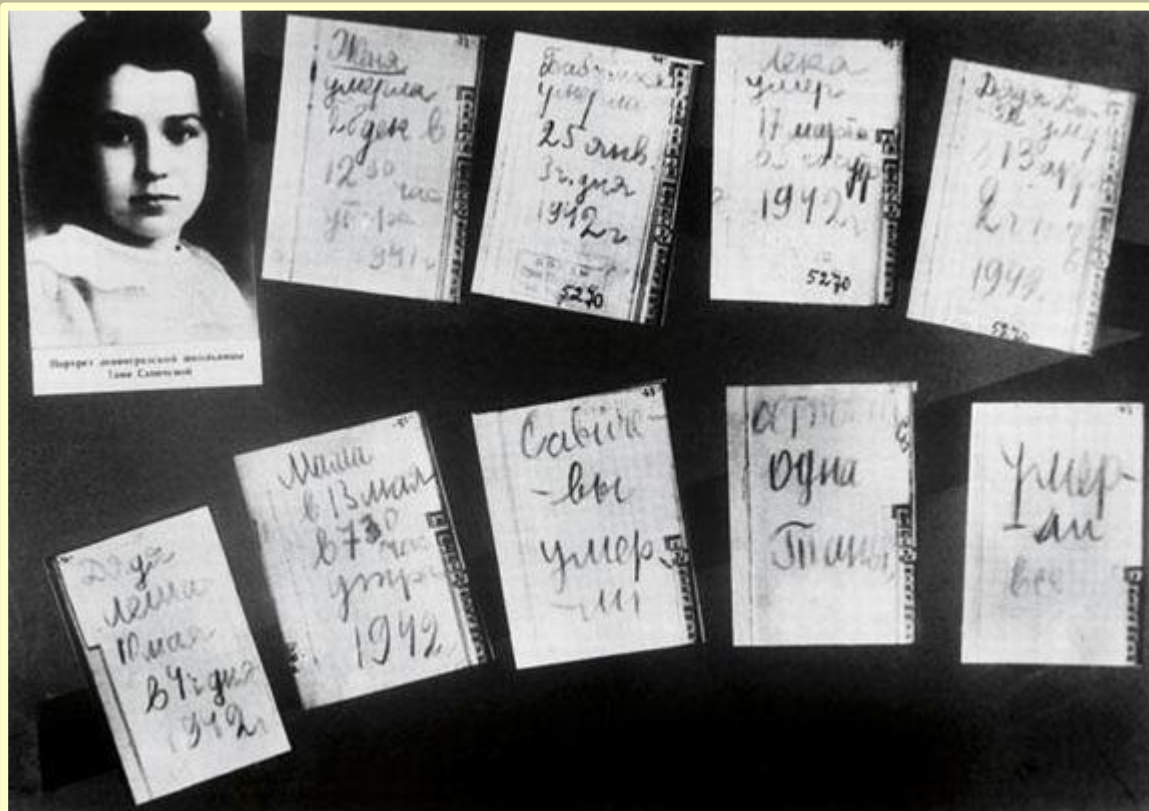 Портрет ленинградской школьницы
Тани Савичевой
Женя
умерла
28 дек в
12 30
час
утра
1941 г
Бабушка
умерла
25 янв.
3 ч. дня
1942 г
5270
Лека
умер
17 марта
1942 г
5270
Дядя Ва-
умер
13 апр
2 ч
1942
5270
Дядя
Леша
10 мая
в 4 ч дня
1942 г
Мама
в 13 мая
в 7 30
час
утра
1942
Савиче-
-вы
умер
-ли
одна
Таня
умер-
-ли
все